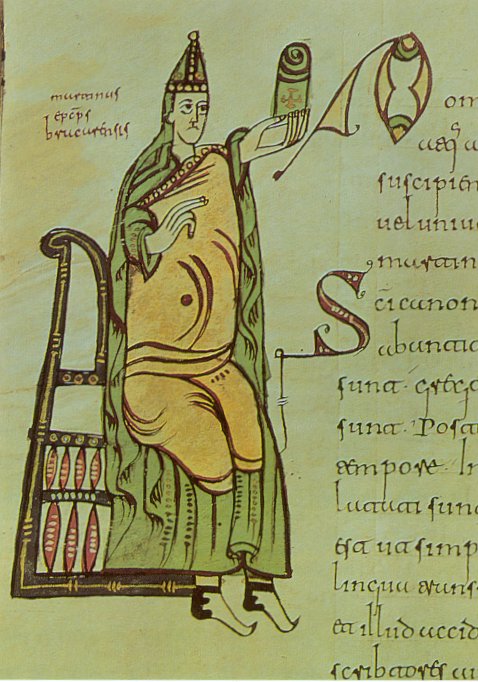 martinus
epcps
bracarensis
om
suscipien
uel uniue
martin
Sci canon
ab anti
sunt. greco
sunt. Post
tempore. In
lati sunt
est ut simp
lingua trans
et illud accid
scribtores